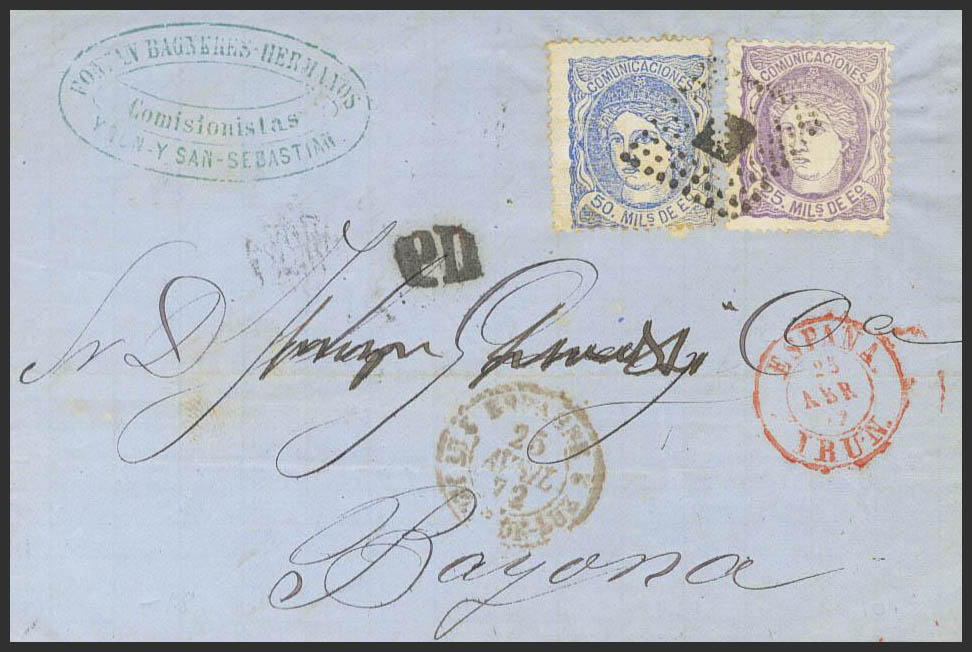 FORMAN BAGNERES-HERMANOS
Comisionistas
YRUN-Y SAN-SEBASTIAN.
COMUNICACIONES
50. MILS DE EO
COMUNICACIONES
25. MILS DE EO
PD
Sr D
Bayona
ESPAÑA.
25
ABR
IRUN.
ESPAGNE
26
AVRIL
72
DE-LUZ